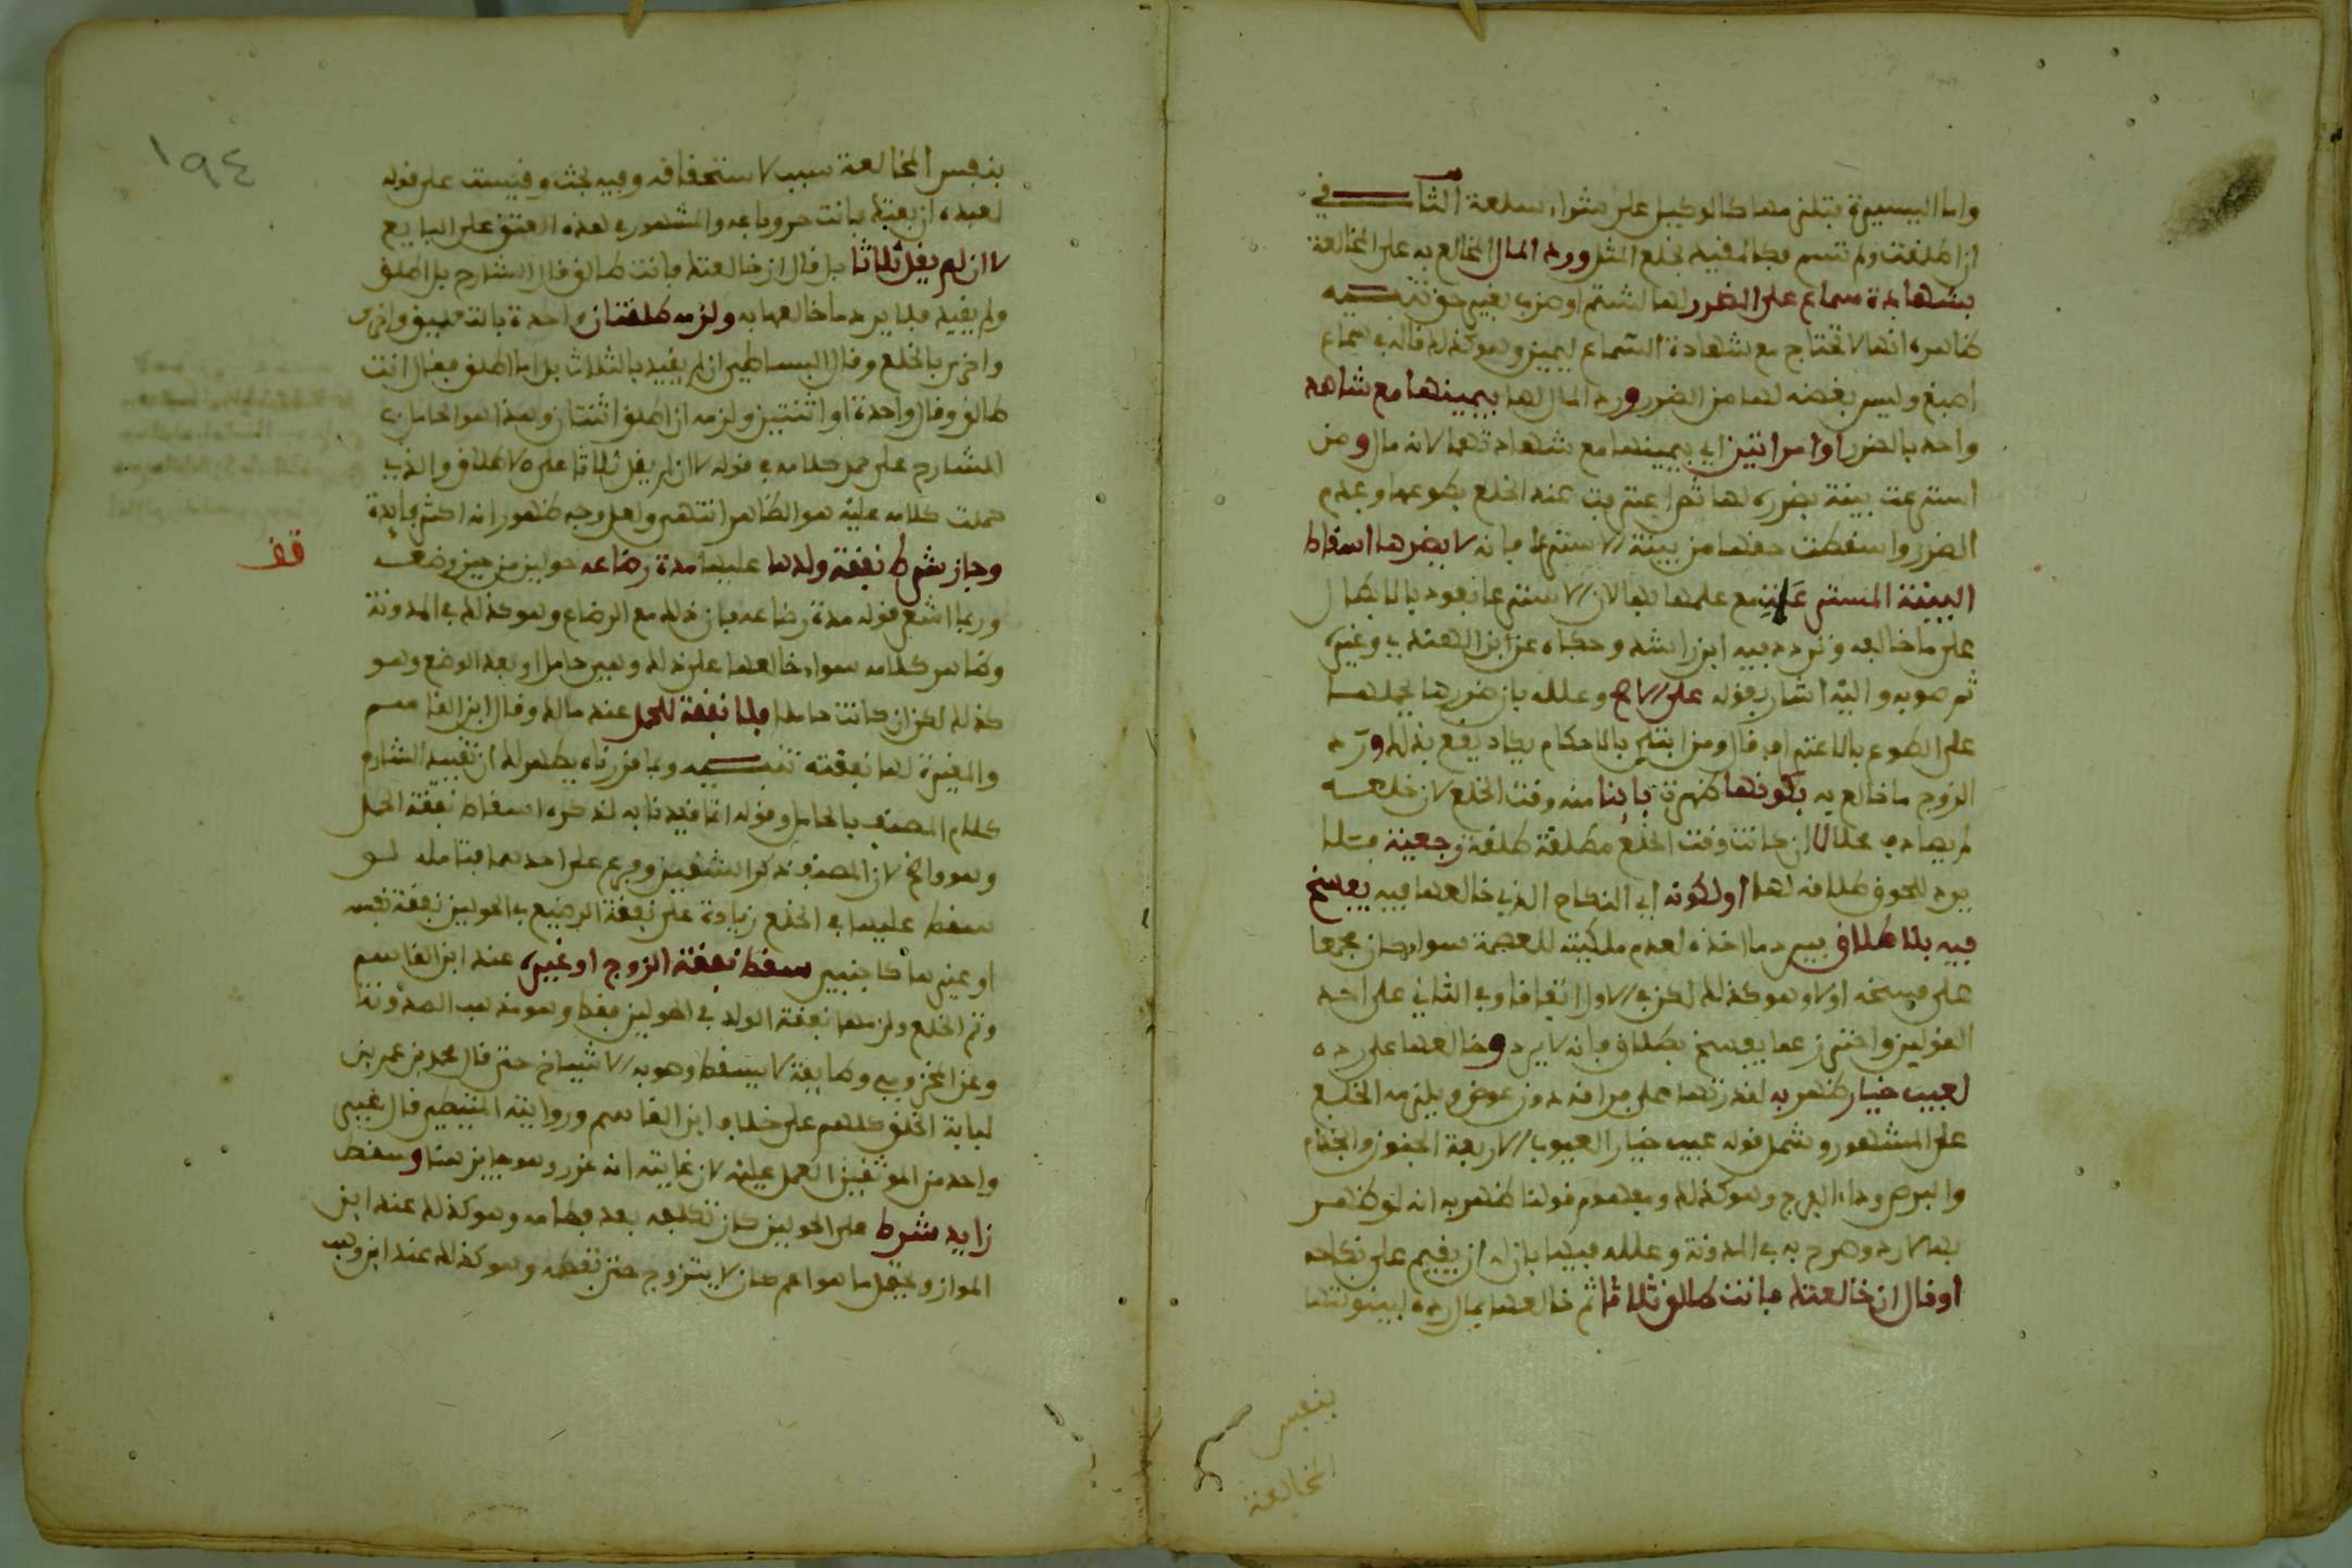 واما اليسيرة فتلزمها كالوكيل على شراء سلعة الثاني في
ان اطلقت ولم تسم فكالمقيد بخلع المثل ورد المال المخالع به على المخالعة
بشهادة سماع على الضرر لها لشتم او ضرب بغير حق تنبيه
ظاهره انها لا تحتاج مع شهادة السماع ليمين وهو كذلك قاله في سماع
اصبغ وليس بغضه لها من الضرر ورد المال لها بيمينها مع شاهد
واحد بالضرر او امراتين اي بيمينها مع شهادتهما لانه مال ومن
استرعت بينة بضرره لها ثم اعترفت عند الخلع بطوعها وعدم
الضرر واسقطت حقها من بينة الاسترعا فانه لا يضرها اسقاط
البينة المسترعاة مع علمها بها لان الاسترعا يعود بالابطال
على ما خالعه وتردد فيه ابن راشد وحكاه عن ابن الهندي وغيره
ثم صوبه واليه اشار بقوله على الاصح وعلله بان ضررها يحملها
على الطوع بالاعتراف قال ومن ابتلي بالاحكام يكاد يقع بذلك ورد
الزوج ما خالع به بكونها ظهرت باينا منه وقت الخلع لان خلعه
لم يصادف محلا لا ان كانت وقت الخلع مطلقة طلقة رجعية فلا
يرد للحوق طلاقه لها او لكونه اي النكاح الذي خالعها فيه يفسخ
فيه بلا طلاق فيرد ما اخذه لعدم ملكيته للعصمة سواء كان مجمعا
على فسخه او لا وهو كذلك لكن في الاول اتفاقا وفي الثاني على احد
القولين واحترز عما يفسخ بطلاق فانه لا يرد وخالعها على رده
لعيب خيار ظهر به لقدرتها على فراقه دون عوض ويلزمه الخلع
على المشهور وشمل قوله عيب خيار العيوب الاربعة الجنون والجذام
والبرص وداء الفرج وهو كذلك ومفهوم قولنا ظهر به انه لو ظهر
بها لا رد وصرح به في المدونة وعلله فيها بان له ان يقيم على نكاحه
او قال ان خالعتك فانت طالق ثلاثا ثم خالعها بمال رده لبينونتها
بنفس
المخالعة
١٩٤
بنفس المخالعة سبب لاستحقاقه وفيه بحث وقيست على قوله
لعبده ان بعتك فانت حر وباعه والمشهور في هذه العتق على البايع
لا ان لم يقل ثلاثا بل قال ان خالعتك فانت طالق قال الشارح بل اطلق
ولم يقيد فلا يرد ما خالعها به ولزمه طلقتان واحدة بالتعليق واخرى
واخرى بالخلع وقال البساطي ان لم يقيد بالثلاث بل اما اطلق فقال انت
طالق وقال واحدة او اثنتين ولزمه ان اطلق اثنتان وهذا هو الحامل
الشارح على حمل كلامه في قوله لا ان لم يقل ثلاثا على الاطلاق والذي
حملت كلامه عليه هو الظاهر انتهى ولعل وجه ظهوره انه اكثر فايدة
وجاز شرط نفقة ولدها عليها مدة رضاعه حولين من حين وضعه
قف
وربما اشعر قوله مدة رضاعه بان ذلك مع الرضاع وهو كذلك في المدونة
وظاهر كلامه سواء خالعها على ذلك وهي حامل او بعد الوضع وهو
كذلك لكن ان كانت حاملا فلا نفقة للحمل عند مالك وقال ابن القاسم
والمغيرة لها نفقته تنبيه وبما قررناه يظهر لك ان تقييد الشارح
كلام المصنف بالحامل وقوله انما قيدنا به لذكره اسقاط نفقة الحمل
وهو واضح لان المصنف ذكر الشقين وفرع على احدهما فتامله لو
سقط عليها في الخلع زيادة على نفقة الرضيع في الحولين نفقة نفسه
او غيرها كاجنبي سقط نفقة الزوج او غيره عند ابن القاسم
وتم الخلع ولزمها نفقة الولد في الحولين فقط وهو مذهب المدونة
وعن المخزومي وطايفة لا يسقط وصوبه الاشياخ حتى قال محمد بن عمر بن
لبابة الخلق كلهم على خلاف ابن القاسم وروايته المتيطي قال غير
واحد من الموثقين العمل عليه لان غايته انه غرر وهو جايز هنا وسقط
زايد شرط على الحولين كان تكلفه بعد فطامه وهو كذلك عند ابن
المواز ويحتمل ما هو اعم كان لا يتزوج حتى تفطمه وهو كذلك عند ابن وهب